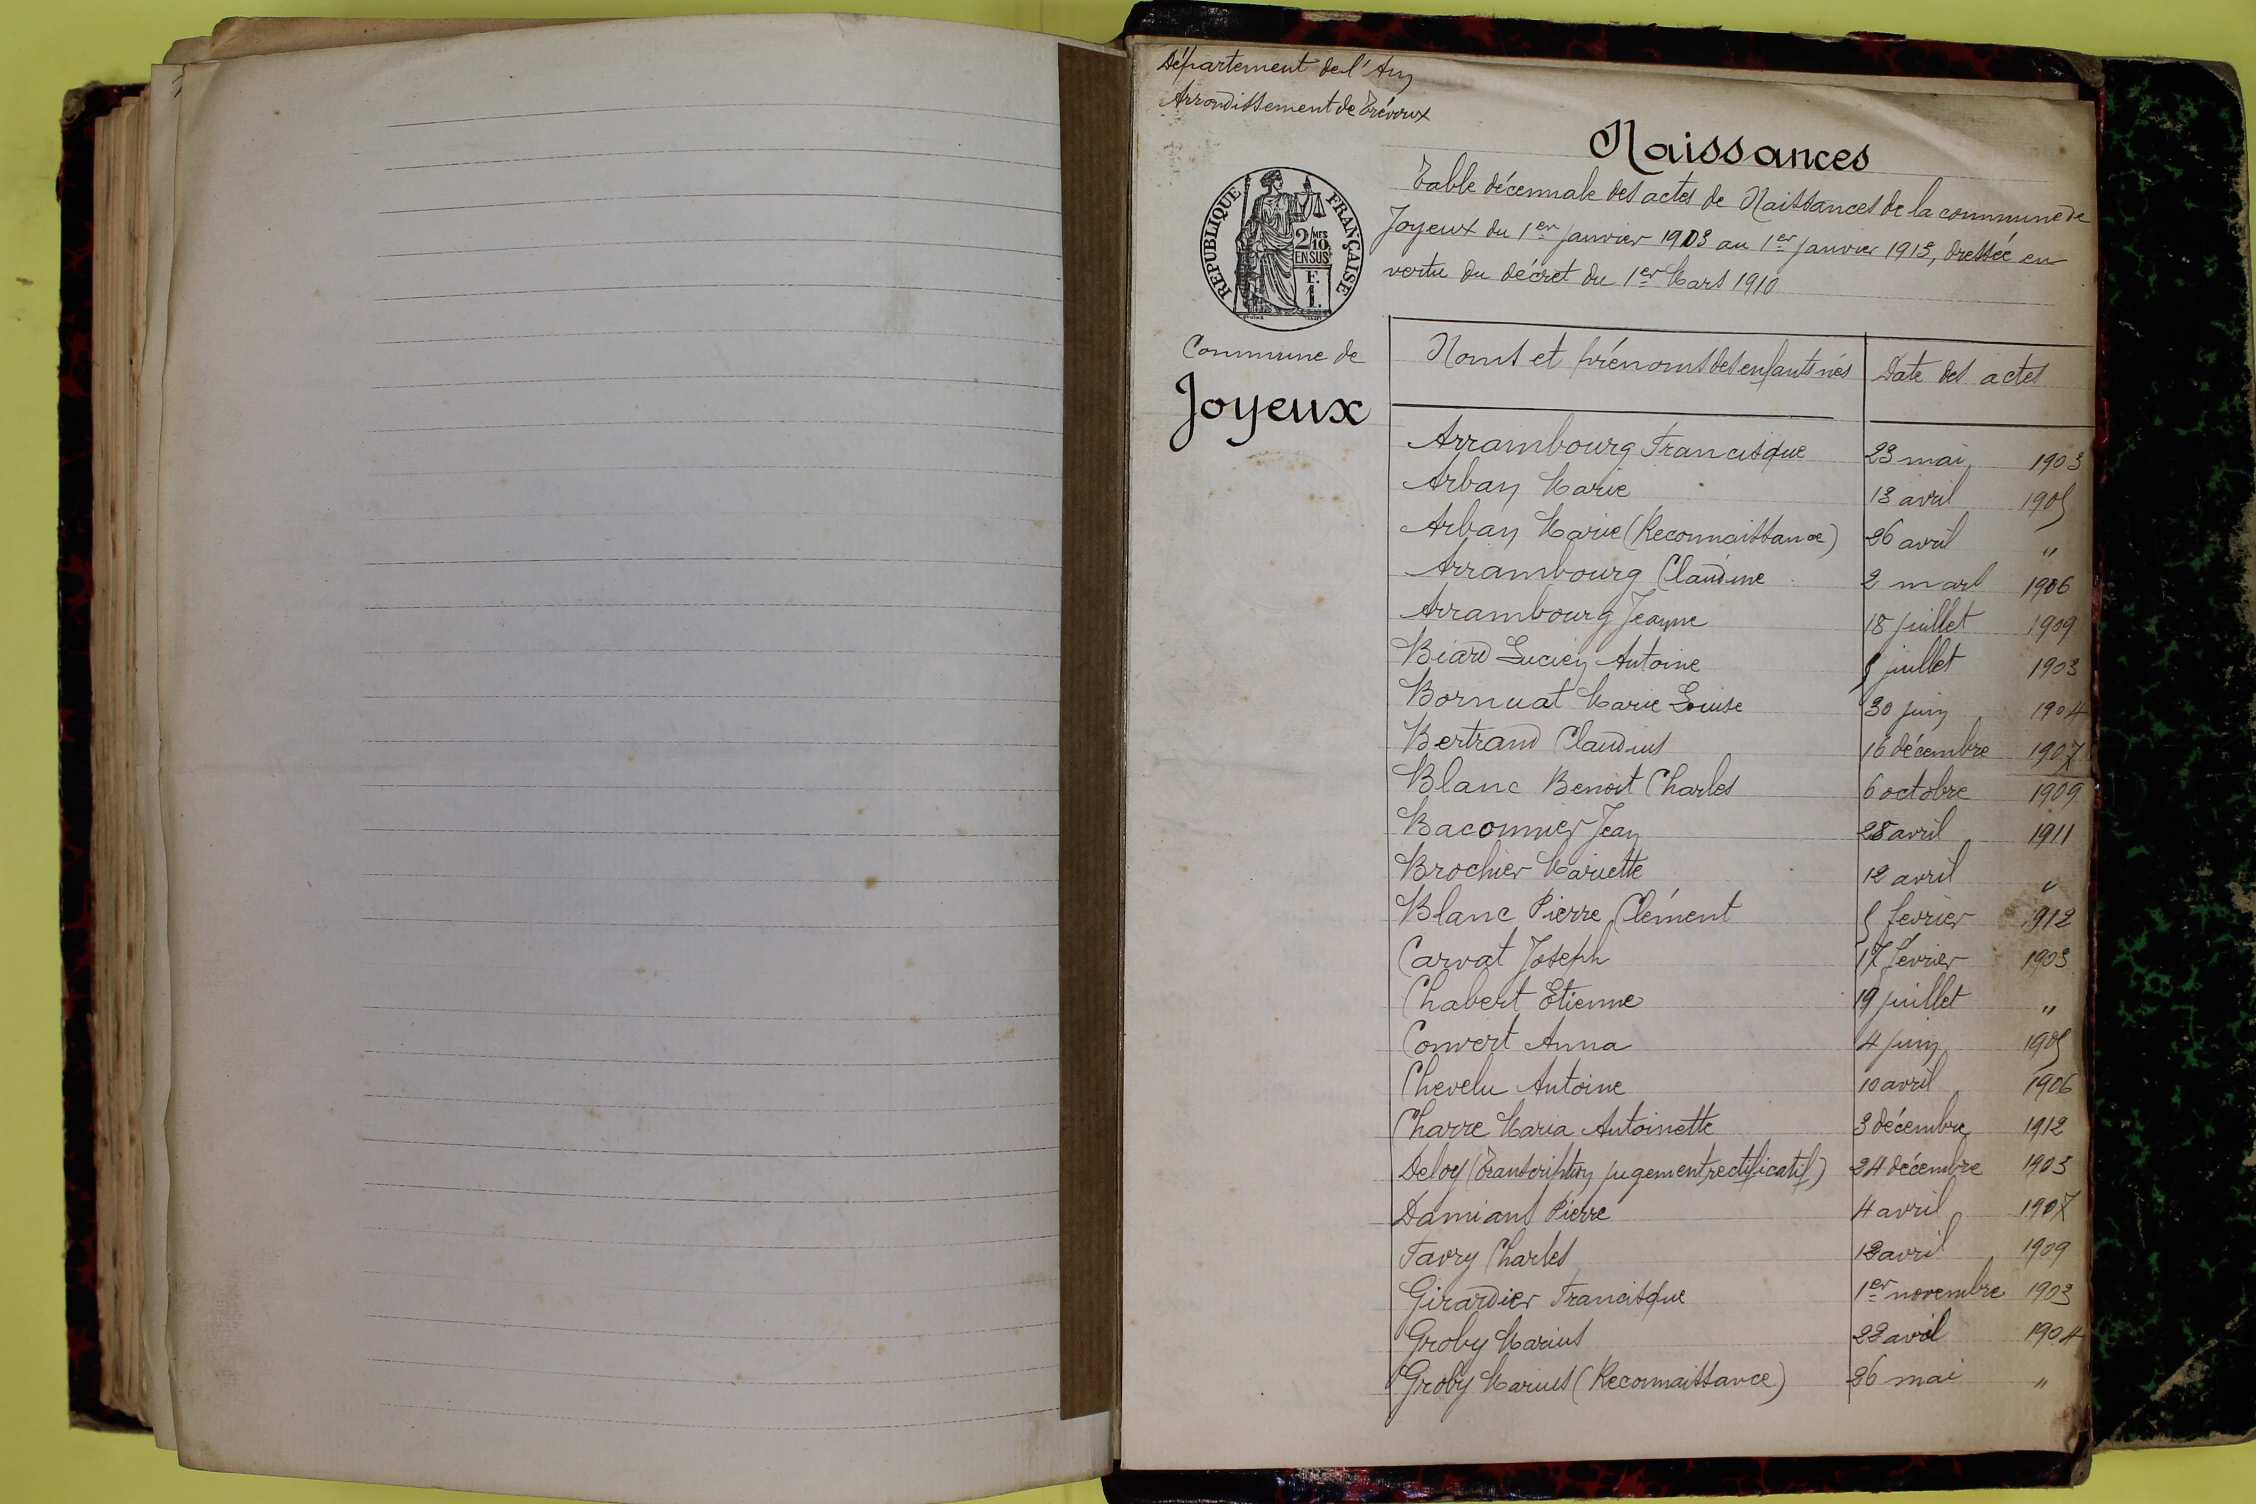 Département de l'Ain
Arrondissement de Trévoux
Naissances
Table décennale des actes de Naissances de la commune de
Joyeux du 1er Janvier 1903 au 1er Janvier 1913, dressée en
vertu du décret du 1er Mars 1910
REPUBLIQUE FRANÇAISE
2/10 MES
EN SUS
F.
1.
Commune de
Joyeux
Noms et prénoms des enfants nés Date des actes
Arrambourg Francisque 23 mai 1903
Arban Marie 13 avril 1905
Arban Marie (Reconnaissance) 26 avril "
Arrambourg Claudine 2 mars 1906
Arrambourg Jeanne 18 juillet 1909
Biard Lucien Antoine 5 juillet 1903
Bornuat Marie Louise 30 juin 1904
Bertrand Claudius 16 décembre 1907
Blanc Benoit Charles 6 octobre 1909
Baconnier Jean 28 avril 1911
Brochier Mariette 12 avril "
Blanc Pierre Clément 5 fevrier 1912
Carvat Joseph 17 février 1903
Chabert Etienne 19 juillet "
Convert Anna 4 juin 1905
Chevelu Antoine 10 avril 1906
Charre Maria Antoinette 3 décembre 1912
Deloy (Transcription jugement rectificatif) 24 décembre 1903
Damians Pierre 4 avril 1907
Favry Charles avril 1909
Girardier Francisque 1er novembre 1903
Groby Marius 22 avril 1904
Groby Marius (Reconnaissance) 26 mai "